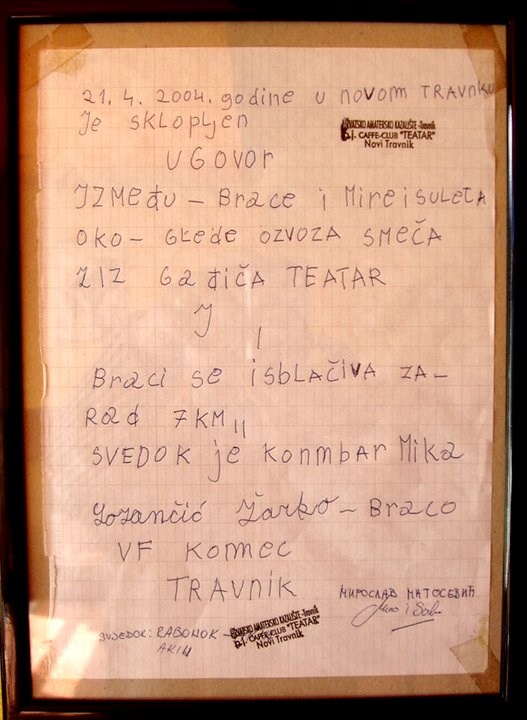 21. 4. 2004. godine u novom TRAVNKU
Je SKLOPLJEN
HRVATSKO AMATERSKO KAZALIŠTE - Travnik
CAFFE-CLUB "TEATAR"
Novi Travnik
UGOVOR
IZMEĐU – Brace i Mire i SULETA
OKO – GLEDE OZVOZA SMEČA
IIZ GaĐiČA TEATAR
J
I
Braci se isblačiva ZA –
RAD 7KM
SVEDOK je KONMbar Mika
Lozančić Žarko – Braco
VF Komec
TRAVNIK
МИРОСЛАВ МАТОСЕВИЋ
SVJEDOK: RABONOK
HRVATSKO AMATERSKO KAZALIŠTE - Travnik
CAFFE-CLUB "TEATAR"
Novi Travnik
AKIM